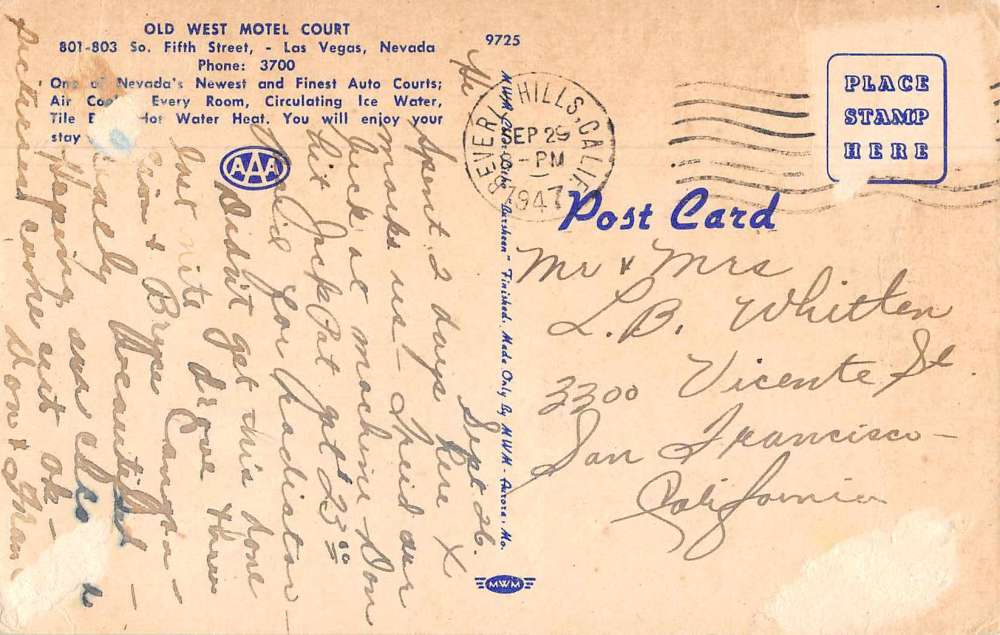 OLD WEST MOTEL COURT
801-803 So. Fifth Street, - Las Vegas, Nevada
Phone: 3700
One of Nevada's Newest and Finest Auto Courts;
Air Every Room, Circulating Ice Water,
Tile Hot Water Heat. You will enjoy your
stay
AAA
9725
BEVERLY HILLS, CALIF.
SEP 29
-PM
1947
PLACE
STAMP
HERE
Post Card
MWM "Larsheen" Finished. Made Only By MWM - Aurora, Mo.
MWM
Sept. 26.
Hi
Spent 2 days here &
marks us - Tried our
luck at machine Don
hit Jack Pot got 25.00
for radiator -
Didn't get this done
last nite drove thru
Zion & Bryce Canyon -
really beautiful -
Hoping our
pictures come out ok -
Don &
Mr & Mrs
L.B. Whitten
3300 Vicente St.
San Francisco -
California